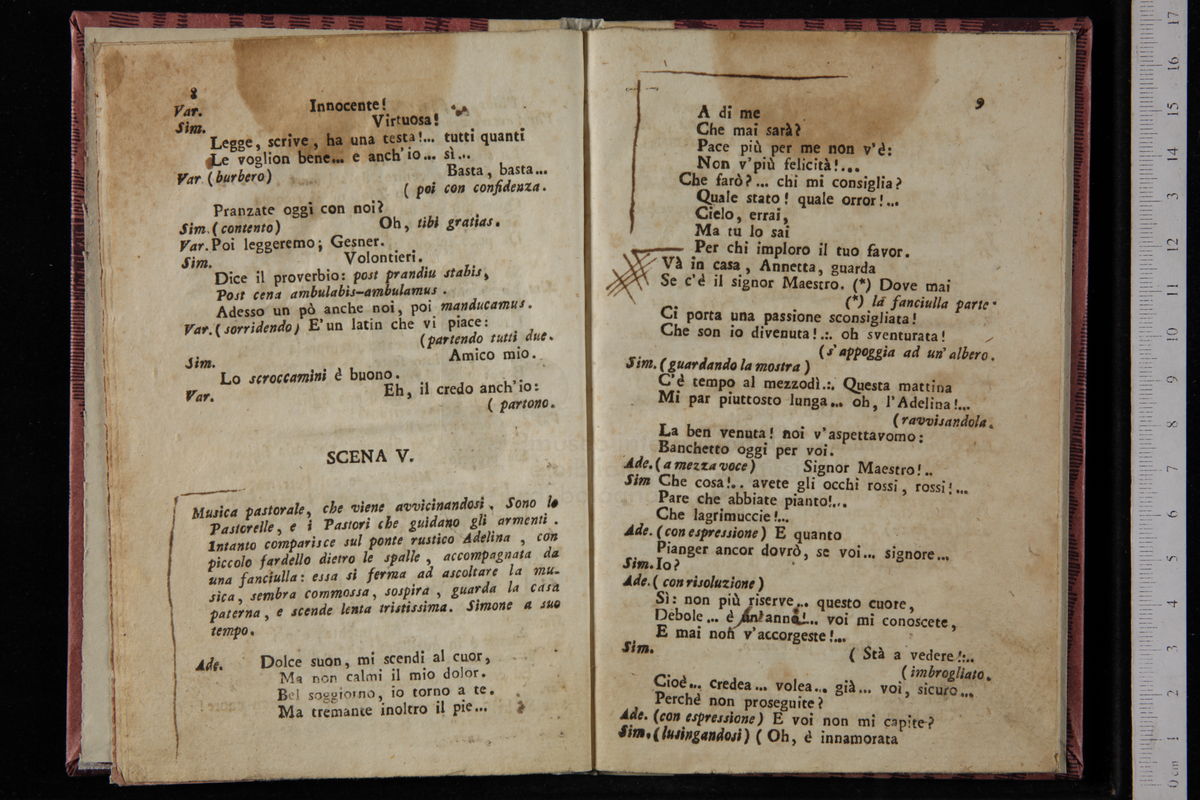 8
Var. Innocente!
Sim. Virtuosa!
Legge, scrive, ha una testa!... tutti quanti
Le voglion bene... e anch'io... sì...
Var (burbero) Basta, basta...
( poi con confidenza.
Pranzate oggi con noi?
Sim. (contento) Oh, tibi gratias.
Var. Poi leggeremo; Gesner.
Sim. Volontieri.
Dice il proverbio: post prandiu stabis,
Post cena ambulabis-ambulamus.
Adesso un pò anche noi, poi manducamus.
Var. (sorridendo) E'un latin che vi piace:
(partendo tutti due.
Sim. Amico mio.
Lo scroccamini è buono.
Var. Eh, il credo anch'io:
( partono.
SCENA V.
Musica pastorale, che viene avvicinandosi. Sono le
Pastorelle, e i Pastori che guidano gli armenti.
Intanto comparisce sul ponte rustico Adelina, con
piccolo fardello dietro le spalle, accompagnata da
una fanciulla: essa si ferma ad ascoltare la mu-
sica, sembra commossa, sospira, guarda la casa
paterna, e scende lenta tristissima. Simone a suo
tempo.
Ade. Dolce suon, mi scendi al cuor,
Ma non calmi il mio dolor.
Bel soggiorno, io torno a te.
Ma tremante inoltro il piè...
9
A di me
Che mai sarà?
Pace più per me non v'è:
Non v'più felicità!...
Che farò?... chi mi consiglia?
Quale stato! quale orror!...
Cielo, errai,
Ma tu lo sai
Per chi imploro il tuo favor.
Và in casa, Annetta, guarda
Se c'è il signor Maestro. (*) Dove mai
(*) la fanciulla parte.
Ci porta una passione sconsigliata!
Che son io divenuta!.:. oh sventurata!
(s'appoggia ad un'albero.
Sim. (guardando la mostra)
C'è tempo al mezzodì.:. Questa mattina
Mi par piuttosto lunga... oh, l'Adelina!...
(ravvisandola.
La ben venuta! noi v'aspettavomo:
Banchetto oggi per voi.
Ade. (a mezza voce) Signor Maestro!..
Sim Che cosa!.. avete gli occhi rossi, rossi!...
Pare che abbiate pianto!...
Che lagrimuccie!...
Ade. (con espressione) E quanto
Pianger ancor dovrò, se voi... signore...
Sim. Io?
Ade. (con risoluzione)
Sì: non più riserve... questo cuore,
Debole... è un'anno!... voi mi conoscete,
E mai non v'accorgeste!...
Sim. ( Stà a vedere!:..
(imbrogliato.
Cioè... credea... volea... già... voi, sicuro...
Perchè non proseguite?
Ade. (con espressione) E voi non mi capite?
Sim. (lusingandosi) ( Oh, è innamorata